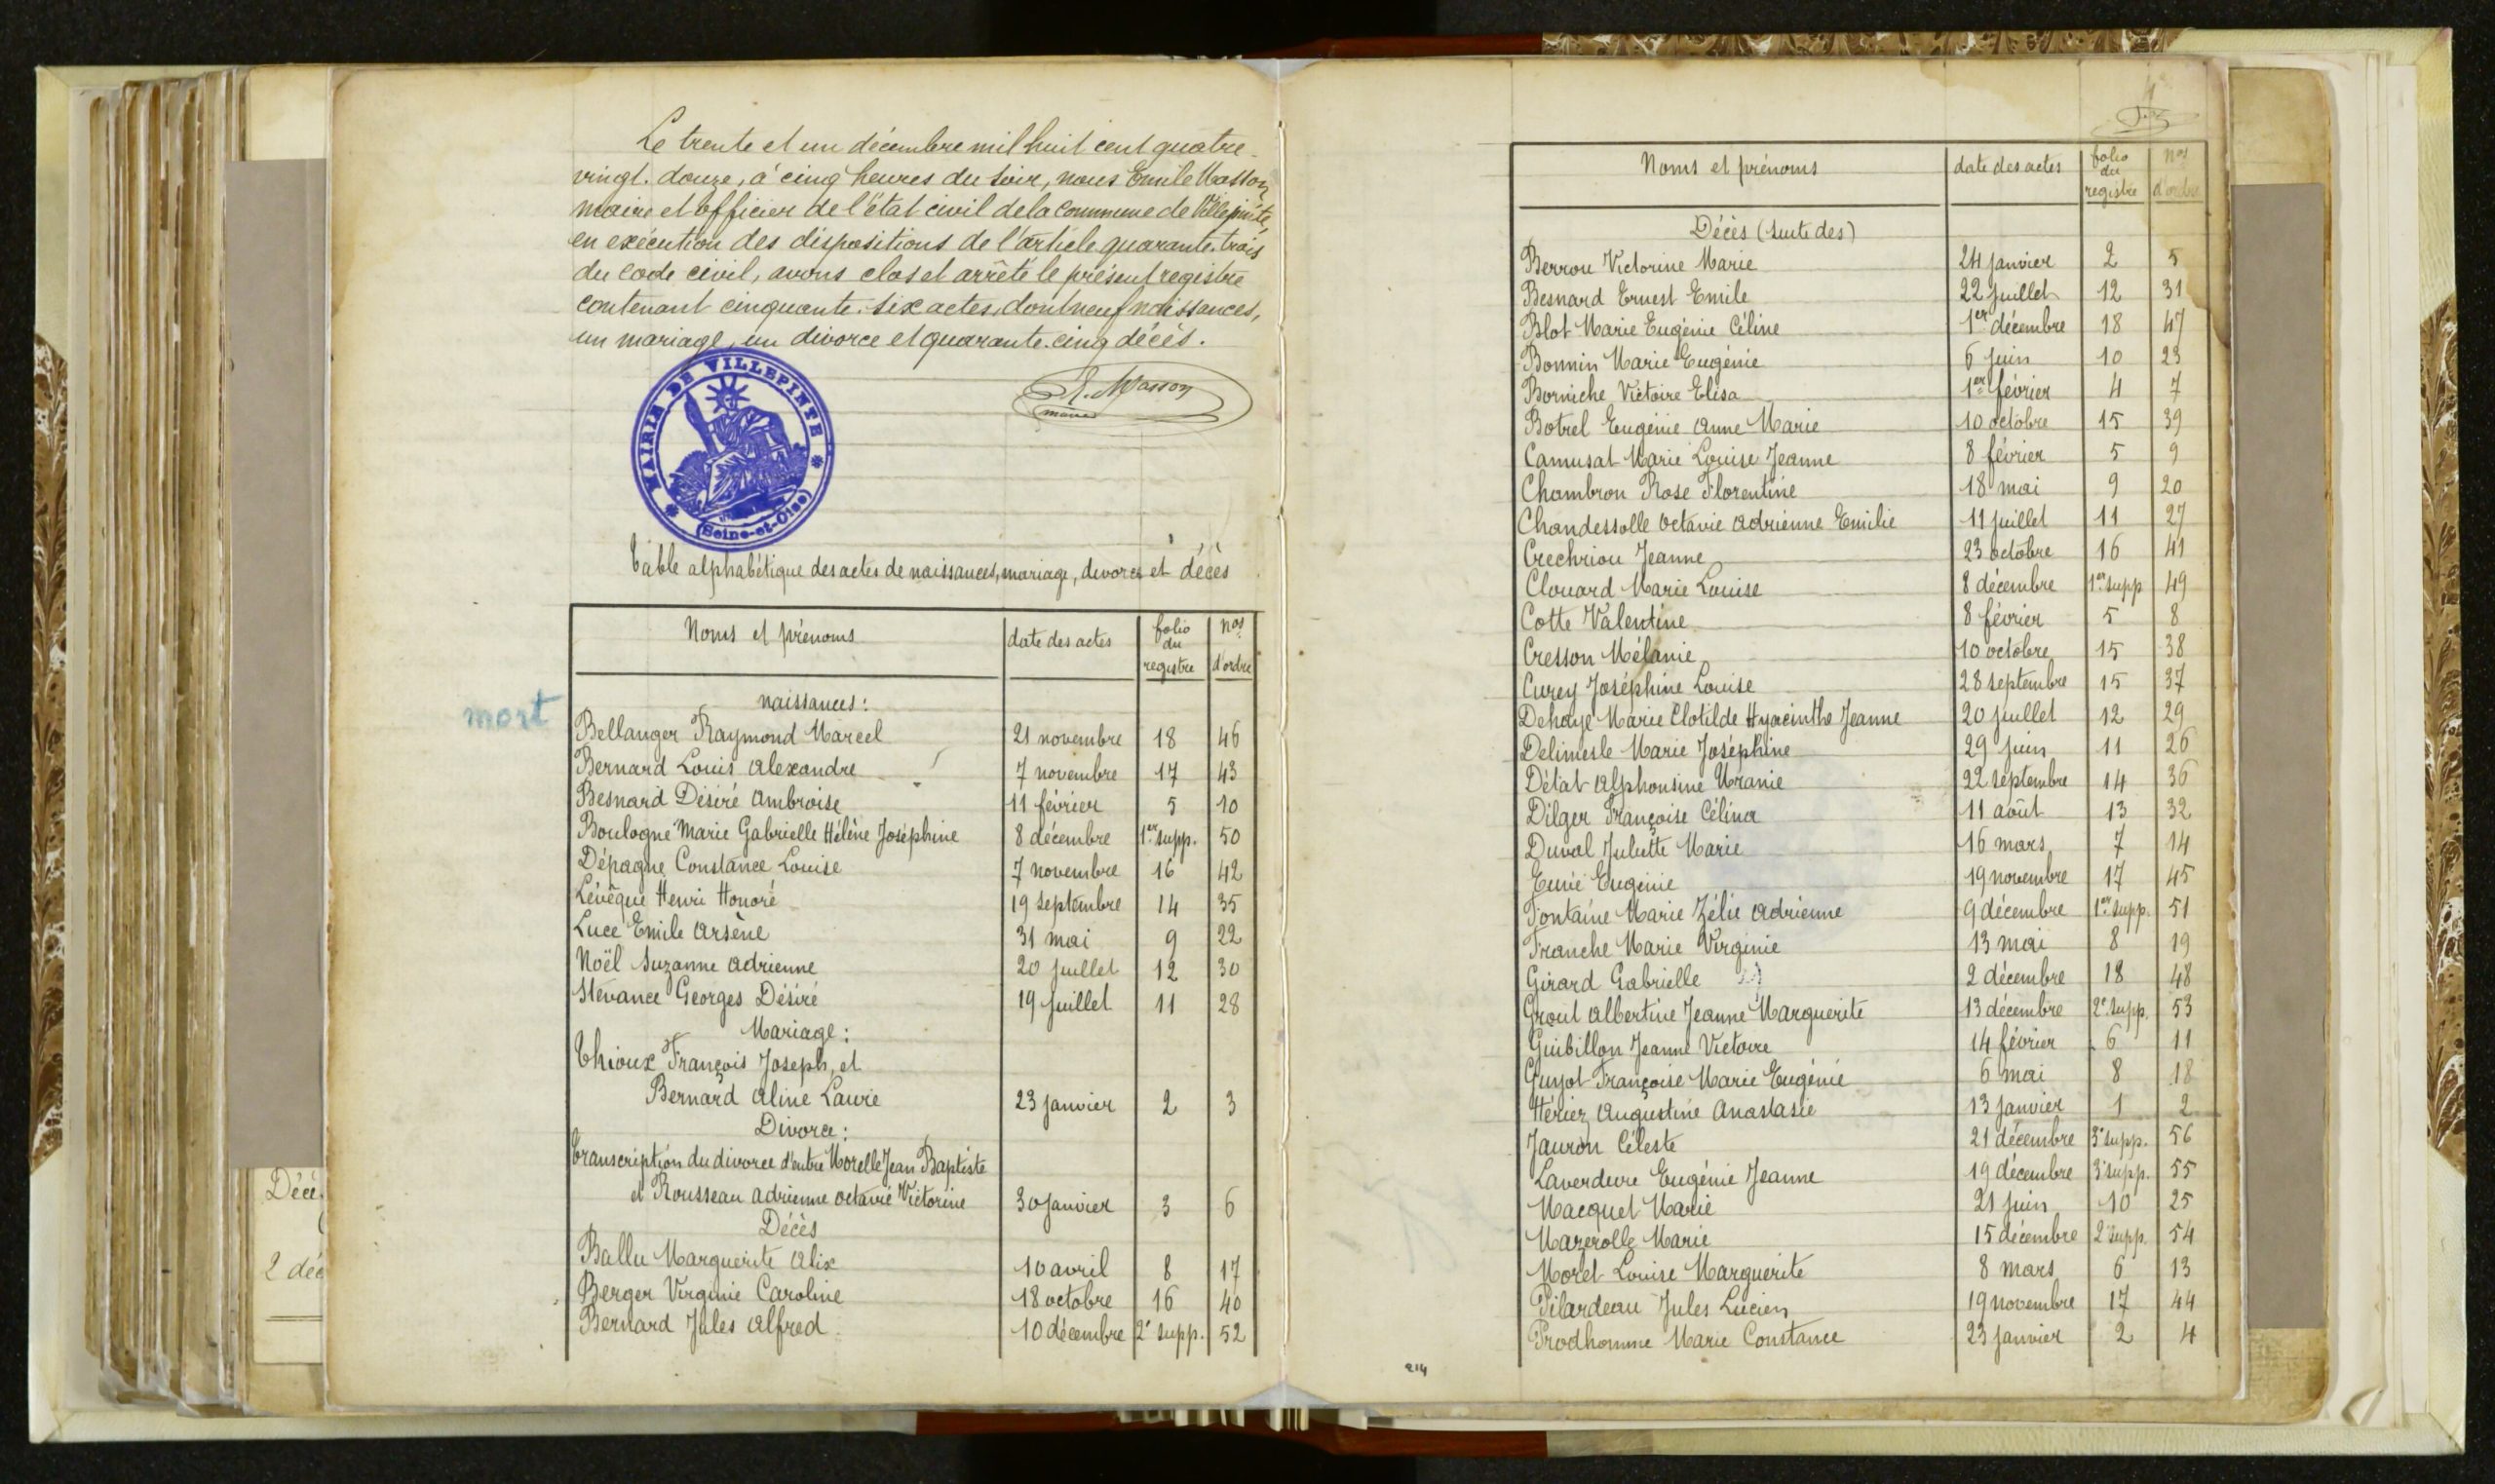 Le trente et un décembre mil huit cent quatre-
vingt-douze, à cinq heures du soir, nous Emile Masson,
maire et officier de l'état civil de la commune de Villepinte,
en exécution des dispositions de l'article quarante-trois
du code civil, avons clos et arrêté le présent registre
contenant cinquante-six actes, dont neuf naissances,
un mariage, un divorce et quarante-cinq décès.
E. Masson
maire
MAIRIE DE VILLEPINTE
(Seine-et-Oise)
Table alphabétique des actes de naissances, mariage, divorce et décès
Noms et prénoms date des actes folio du registre nos d'ordre
naissances:
mort
Bellanger Raymond Marcel 21 novembre 18 46
Bernard Louis Alexandre 7 novembre 17 43
Besnard Désiré Ambroise 11 février 5 10
Boulogne Marie Gabrielle Hélène Joséphine 8 décembre 1er supp. 50
Dépagne Constance Louise 7 novembre 16 42
Lévêque Henri Honoré 19 septembre 14 35
Luce Emile Arsène 31 mai 9 22
Noël Suzanne Adrienne 20 juillet 12 30
Stévance Georges Désiré 19 juillet 11 28
Mariage:
Thioux François Joseph, et
Bernard Aline Laurie 23 janvier 2 3
Divorce:
Transcription du divorce d'entre Morelle Jean Baptiste
et Rousseau Adrienne Octavie Victorine 30 janvier 3 6
Décès
Ballu Marguerite Alix 10 avril 8 17
Berger Virginie Caroline 18 octobre 16 40
Bernard Jules Alfred 10 décembre 2e supp. 52
Décè
2 déc
Noms et prénoms date des actes folio du registre nos d'ordre
Décès (suite des)
Berrou Victorine Marie 24 janvier 2 5
Besnard Ernest Emile 22 juillet 12 31
Blot Marie Eugénie Céline 1er décembre 18 47
Bonnin Marie Eugénie 6 juin 10 23
Borniche Victoire Elisa 1er février 4 7
Botrel Eugénie Anne Marie 10 octobre 15 39
Camusat Marie Louise Jeanne 8 février 5 9
Chambron Rose Florentine 18 mai 9 20
Chandessolle Octavie Adrienne Emilie 11 juillet 11 27
Crechriou Jeanne 23 octobre 16 41
Clouard Marie Louise 8 décembre 1er supp 49
Cotte Valentine 8 février 5 8
Cresson Mélanie 10 octobre 15 38
Curey Joséphine Louise 28 septembre 15 37
Dehaye Marie Clotilde Hyacinthe Jeanne 20 juillet 12 29
Delimesle Marie Joséphine 29 juin 11 26
Détat Alphonsine Uranie 22 septembre 14 36
Dilger Françoise Célina 11 août 13 32
Duval Juliette Marie 16 mars 7 14
Eugénie 19 novembre 17 45
Fontaine Marie Zélie Adrienne 9 décembre 1er supp. 51
Franche Marie Virginie 13 mai 8 19
Girard Gabrielle 2 décembre 18 48
Grout Albertine Jeanne Marguerite 13 décembre 2e supp. 53
Guibillon Jeanne Victoire 14 février 6 11
Guyot Françoise Marie Eugénie 6 mai 8 18
Hériez Augustine Anastasie 13 janvier 1 2
Jauron Céleste 21 décembre 3e supp. 56
Laverdure Eugénie Jeanne 19 décembre 3e supp. 55
Macquet Marie 21 juin 10 25
Mazerolle Marie 15 décembre 2e supp. 54
Morel Louise Marguerite 8 mars 6 13
Pilardeau Jules Lucien 19 novembre 17 44
Prodhomme Marie Constance 23 janvier 2 4
214